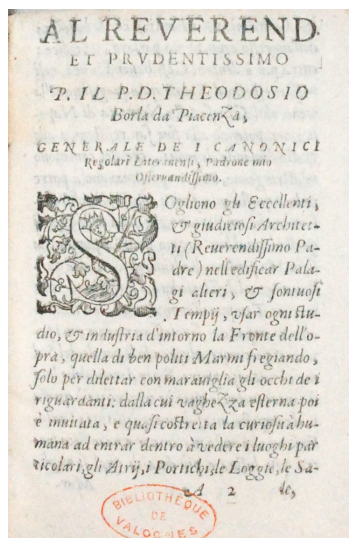 AL REVEREND.
ET PRVDENTISSIMO
P. IL P. D. THEODOSIO
Borla da Piacenza,
GENERALE DE I CANONICI
Regolari Lateranensi, Padrone mio
Osseruandissimo.
SOgliono gli Eccellenti,
& giudiciosi Architet-
ti (Reuerendissimo Pa-
dre) nell'edificar Pala-
gi alteri, & sontuosi
Tempij, vsar ogni stu-
dio, & industria d'intorno la Fronte dell'o-
pra, quella di ben politi Marmi fregiando,
solo per dilettar con marauiglia gli occhi de i
riguardanti: dalla cui vaghezza esterna poi
è inuitata, e quasi costretta la curiosità hu-
mana ad entrar dentro à vedere i luoghi par
ticolari, gli Atrij, i Portichi, le Loggie, le Sa-
A 2 le,
BIBLIOTHEQUE
DE
VALOGNES